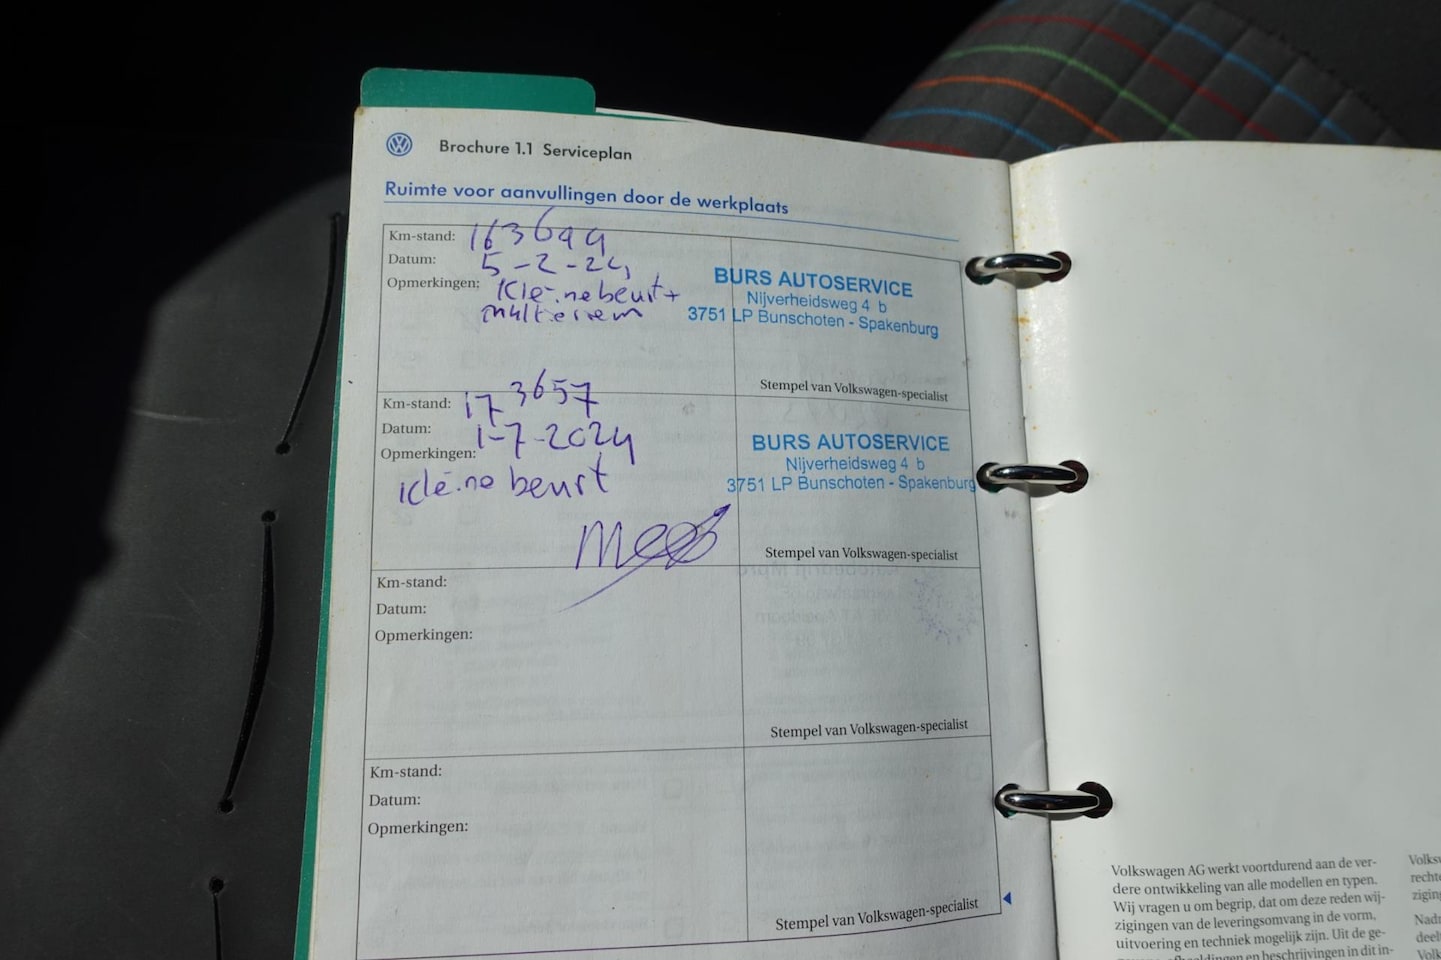 Brochure 1.1 Serviceplan
Ruimte voor aanvullingen door de werkplaats
Km-stand: 163699
Datum: 5-2-24
Opmerkingen: Kleine beurt +
multeirem
BURS AUTOSERVICE
Nijverheidsweg 4 b
3751 LP Bunschoten - Spakenburg
Stempel van Volkswagen-specialist
Km-stand: 173657
Datum: 1-7-2024
Opmerkingen:
kleine beurt
BURS AUTOSERVICE
Nijverheidsweg 4 b
3751 LP Bunschoten - Spakenburg
Stempel van Volkswagen-specialist
Km-stand:
Datum:
Opmerkingen:
Stempel van Volkswagen-specialist
Km-stand:
Datum:
Opmerkingen:
Stempel van Volkswagen-specialist
Volkswagen AG werkt voortdurend aan de ver-
dere ontwikkeling van alle modellen en typen.
Wij vragen u om begrip, dat om deze reden wij-
zigingen van de leveringsomvang in de vorm,
uitvoering en techniek mogelijk zijn. Uit de ge-